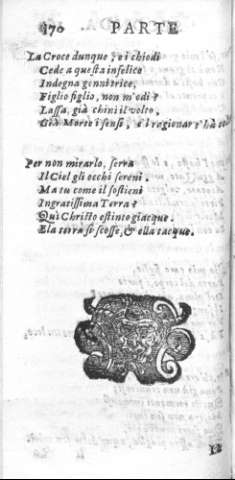 370 PARTE
La Croce dunque, e i chiodi
Cede a questa infelice
Indegna genitrice,
Figlio figlio, non m'odi?
Lassa, già chini il volto.
Già Morte i sensi, e'l ragionar t'hà
Per non mirarlo, serra
Il Ciel gli occhi sereni.
Ma tu come il sostieni
Ingratissima Terra?
Quì Christo estinto giacque.
E la terra si scosse, & ella tacque.